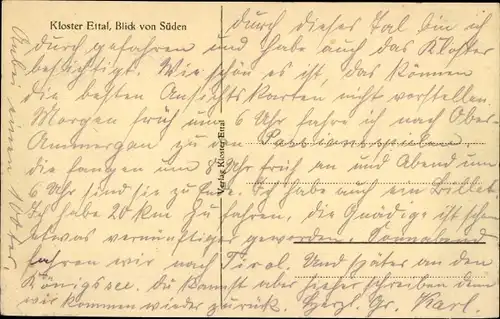 Kloster Ettal, Blick von Süden
Verlag Kloster Ettal
durch dieses Tal bin ich
durch gefahren und habe auch das Kloster
besichtigt. Wie schön es ist, das können
die besten Ansichtskarten nicht vorstellen.
Morgen früh um 6 Uhr fahre ich nach Ober-
Ammergau zu den Passionsspielen.
die fangen um 8 Uhr früh an und Abend um
6 Uhr sind sie zu Ende. Ich habe auch ein Billet.
Ich habe 20 km zu fahren, die Gnädige ist schon
etwas vernünftiger geworden. Sonnabend
fahren wir nach Tirol. Und später an den
Königssee. du kannst aber hieher schreiben denn
wir kommen wieder zurück. Herzl. Gr. Karl.